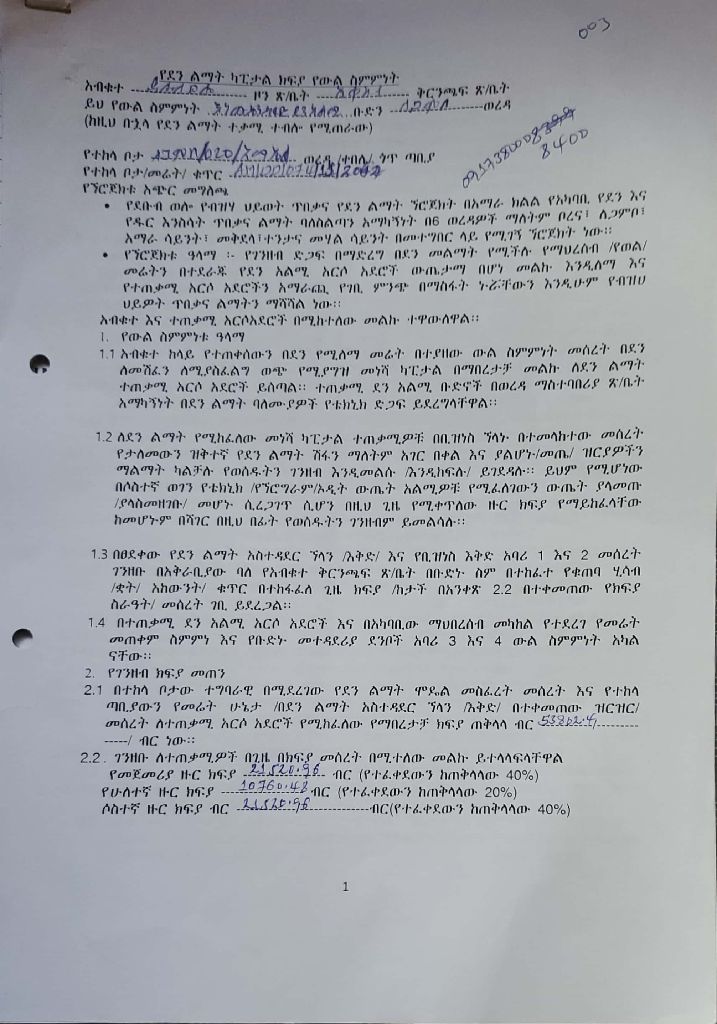 003
የደን ልማት ካፒታል ክፍያ የውል ስምምነት
አብቁተ ዞን ጽ/ቤት ቅርንጫፍ ጽ/ቤት
ይህ የውል ስምምነት ቡድን ወረዳ
(ከዚህ በኋላ የደን ልማት ተቃሚ ተብሎ የሚጠራው)
8400
የተከላ ቦታ ወረዳ /ቀበሌ/ ጎጥ ጣቢያ
የተከላ ቦታ/መሬት/ ቁጥር
የኘሮጀክቱ አጭር መግለጫ
• የደቡብ ወሎ የብዝሃ ህይወት ጥበቃና የደን ልማት ኘሮጀክት በአማራ ክልል የአካባቢ የደን እና
የዱር እንስሳት ጥበቃና ልማት ባለስልጣን አማካኝነት በ6 ወረዳዎች ማለትም ቦረና፣ ለጋምቦ፣
አማራ ሳይንት፣ መቅደላ፣ተንታና መሃል ሳይንት በመተግበር ላይ የሚገኝ ኘሮጀክት ነው፡፡
• የኘሮጀክቱ ዓላማ ፡- የገንዘብ ድጋፍ በማድረግ በደን መልማት የሚችሉ የማህረሰብ /የወል/
መሬትን በተደራጁ የደን አልሚ አርሶ አደሮች ውጤታማ በሆነ መልኩ እንዲለማ እና
የተጠቃሚ አርሶ አደሮችን አማራጪ የገቢ ምንጭ በማስፋት ኑሯቸውን እንዲሁም የብዝሀ
ህይዎት ጥበቃና ልማትን ማሻሻል ነው፡፡
አብቁተ እና ተጠቃሚ አርሶአደሮች በሚከተለው መልኩ ተዋውለዋል፡፡
1. የውል ስምምነቱ ዓላማ
1.1 አብቁተ ከላይ የተጠቀሰውን በደን የሚለማ መሬት በተያዘው ውል ስምምነት መሰረት በደን
ለመሸፈን ለሚያስፈልግ ወጭ የሚያግዝ መነሻ ካፒታል በማበረታቻ መልኩ ለደን ልማት
ተጠቃሚ አርሶ አደሮች ይሰጣል፡፡ ተጠቃሚ ደን አልሚ ቡድኖች በወረዳ ማስተባበሪያ ጽ/ቤት
አማካኝነት በደን ልማት ባለሙያዎች የቴክኒክ ድጋፍ ይደረግላቸዋል፡፡
1.2 ለደን ልማት የሚከፈለው መነሻ ካፒታል ተጠቃሚዎቹ በቢዝነስ ኘላኑ በተመላከተው መሰረት
የታለመውን ዝቅተኛ የደን ልማት ሽፋን ማለትም አገር በቀል እና ያልሆኑ/መጤ/ ዝርያዎችን
ማልማት ካልቻሉ የወሰዱትን ገንዘብ እንዲመልሱ /እንዲከፍሉ/ ይገደዳሉ፡፡ ይህም የሚሆነው
በሶስተኛ ወገን የቴክኒክ /የኘሮግራም/ኦዲት ውጤት አልሚዎቹ የሚፈለገውን ውጤት ያላመጡ
/ያላስመዘገቡ/ መሆኑ ሲረጋገጥ ሲሆን በዚህ ጊዜ የሚቀጥለው ዙር ክፍያ የማይከፈላቸው
ከመሆኑም በሻገር በዚህ በፊት የወሰዱትን ገንዘብም ይመልሳሉ፡፡
1.3 በፀደቀው የደን ልማት አስተዳደር ኘላን /እቅድ/ እና የቢዝነስ እቅድ አባሪ 1 እና 2 መሰረት
ገንዘቡ በአቅራቢያው ባለ የአብቁተ ቅርንጫፍ ጽ/ቤት በቡድኑ ስም በተከፈተ የቁጠባ ሂሳብ
/ቋት/ አከውንት/ ቁጥር በተከፋፈለ ጊዜ ክፍያ /ከታች በአንቀጽ 2.2 በተቀመጠው የክፍያ
ስራዓት/ መሰረት ገቢ ይደረጋል፡፡
1.4 በተጠቃሚ ደን አልሚ አርሶ አደሮች እና በአካባቢው ማህበረሰብ መካከል የተደረገ የመሬት
መጠቀም ስምምነ እና የቡድኑ መተዳደሪያ ደንቦች አባሪ 3 እና 4 ውል ስምምነት አካል
ናቸው፡፡
2. የገንዘብ ክፍያ መጠን
2.1 በተከላ ቦታው ተግባራዊ በሚደረገው የደን ልማት ሞዴል መስፈረት መሰረት እና የተከላ
ጣቢያውን የመሬት ሁኔታ /በደን ልማት አስተዳደር ኘላን /እቅድ/ በተቀመጠው ዝርዝር/
መሰረት ለተጠቃሚ አርሶ አደሮች የሚከፈለው የማበረታቻ ክፍያ ጠቅላላ ብር 53802.4/
-----/ ብር ነው፡፡
2.2. ገንዘቡ ለተጠቃሚዎች በጊዜ በክፍያ መሰረት በሚተለው መልኩ ይተላላፍላቸዋል
የመጀመሪያ ዙር ክፍያ 21520.96 ብር (የተፈቀደውን ከጠቅላላው 40%)
የሁለተኛ ዙር ክፍያ 10760.48 ብር (የተፈቀደውን ከጠቅላላው 20%)
ሶስተኛ ዙር ክፍያ ብር 21520.96 ብር(የተፈቀደውን ከጠቅላላው 40%)
1